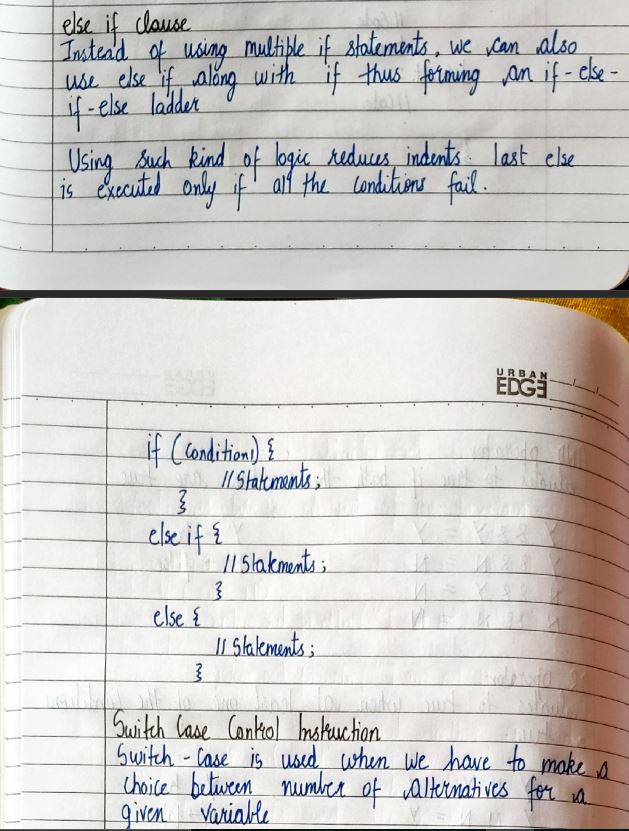 else if clause
Instead of using multiple if statements, we can also
use else if along with if thus forming an if-else-
if-else ladder
Using such kind of logic reduces indents. last else
is executed only if all the conditions fail.
URBAN
EDGE
if (condition1) {
//Statements;
}
else if {
//Statements;
}
else {
//Statements;
}
Switch Case Control Instruction
Switch-Case is used when we have to make a
choice between number of alternatives for a
given variable